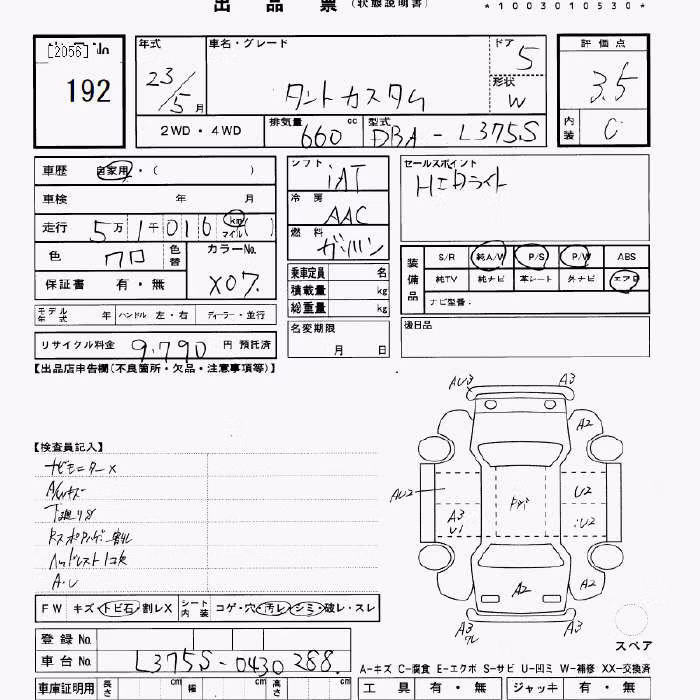 出品票 (状態説明書) *1003010530*
[2056] 192
年式 車名・グレード ドア 5 評価点
23/5月 タントカスタム 形状 W 3.5
2WD・4WD 排気量 660 cc 型式 DBA-L375S 内装 C
車歴 自家用・( ) シフト iAT セールスポイント
車検 年 月 冷房 AAC HIDライト
走行 5万1千016 km マイル ( ) 燃料 ガソリン
色 クロ 色替 カラーNo. X07. 装備品 S/R 純A/W P/S P/W ABS
保証書 有・無 乗車定員 名 純TV 純ナビ 革シート 外ナビ エアB
積載量 kg ナビ型番:
モデル年式 年 ハンドル 左・右 ディーラー・並行 総重量 kg 後日品
リサイクル料金 9,790 円 預託済 名変期限 月 日
【出品店申告欄(不良箇所・欠品・注意事項等)】
AU3 A3
A2
【検査員記入】
ナビモニターX
A/Wキズ
AU2 U2
下廻りサビ
A3 U1 U2
ヘッドレスト1コ欠
A.U
A2 A2
FW キズ・トビ石・割レX シート内装 コゲ・穴・汚レ・シミ・破レ・スレ
A3 ワレ A3
登録No. スペア
車台No. L375S-0430288. A-キズ C-腐食 E-エクボ S-サビ U-凹ミ W-補修 XX-交換済
車庫証明用 長さ cm 幅 cm 高さ cm 工具 有・無 ジャッキ 有・無